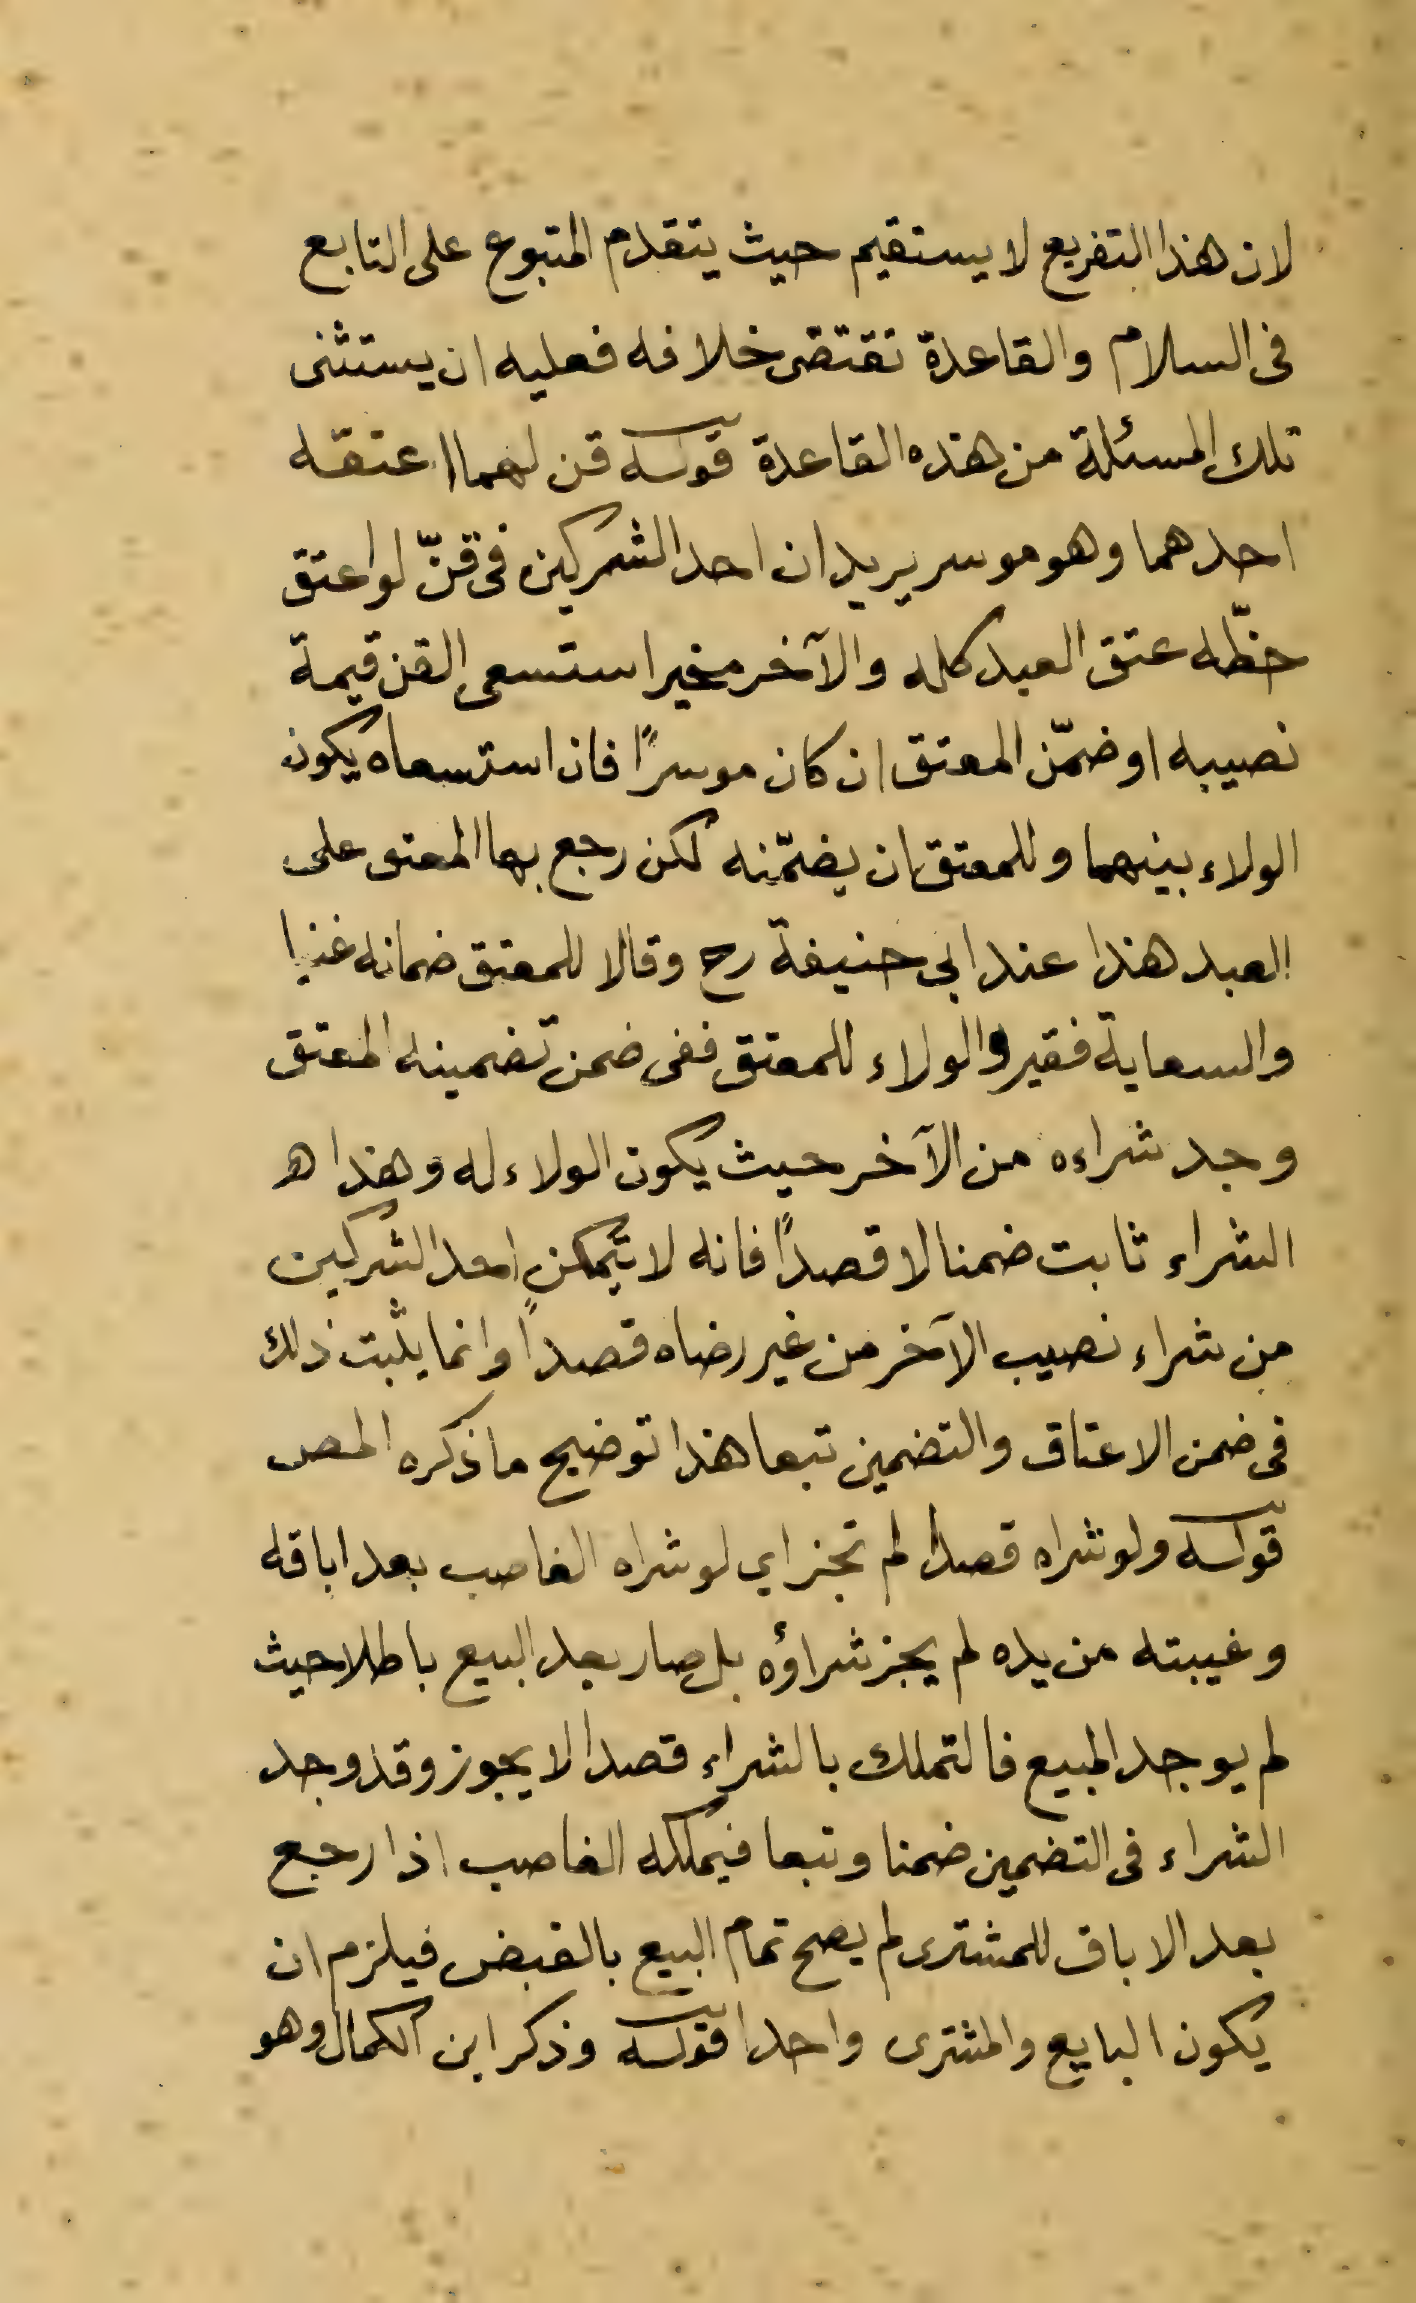 لان هذا التفريع لا يستقيم حيث يتقدم المتبوع على التابع
فى السلام والقاعدة تقتضى خلافه فعليه ان يستثنى
تلك المسئلة من هذه القاعدة قوله قن لهما اعتقه
احدهما وهو موسر يريد ان احد الشركين فى قنّ لو اعتق
حظّه عتق العبد كله والآخر مخير استسعى القن قيمة
نصيبه او ضمّن المعتق ان كان موسرًا فان استسعاه يكون
الولاء بينهما وللمعتق ان يضمّنه لكن رجع بها المعتق على
العبد هذا عند ابى حنيفة رح وقالا للمعتق ضمانه غنيا
والسعاية فقيرا والولاء للمعتق ففى ضمن تضمينه المعتق
وجد شراءه من الآخر حيث يكون الولاء له وهذا ه
الشراء ثابت ضمنا لا قصدًا فانه لا يتمكن احد الشركين
من شراء نصيب الآخر من غير رضاه قصدًا وانما يثبت ذلك
فى ضمن الاعتاق والتضمين تبعا هذا توضيح ما ذكره المص
قوله ولو شراه قصدا لم تجز اي لو شراه الغاصب بعد اباقه
وغيبته من يده لم يجز شراؤه بل صار بعد البيع باطلا حيث
لم يوجد المبيع فالتملك بالشراء قصدا لا يجوز وقد وجد
الشراء فى التضمين ضمنا وتبعا فيملكه الغاصب اذا رجع
بعد الاباق للمشترى لم يصح تمام البيع بالقبض فيلزم ان
يكون البايع والمشترى واحدا قوله وذكر ابن الكمال وهو